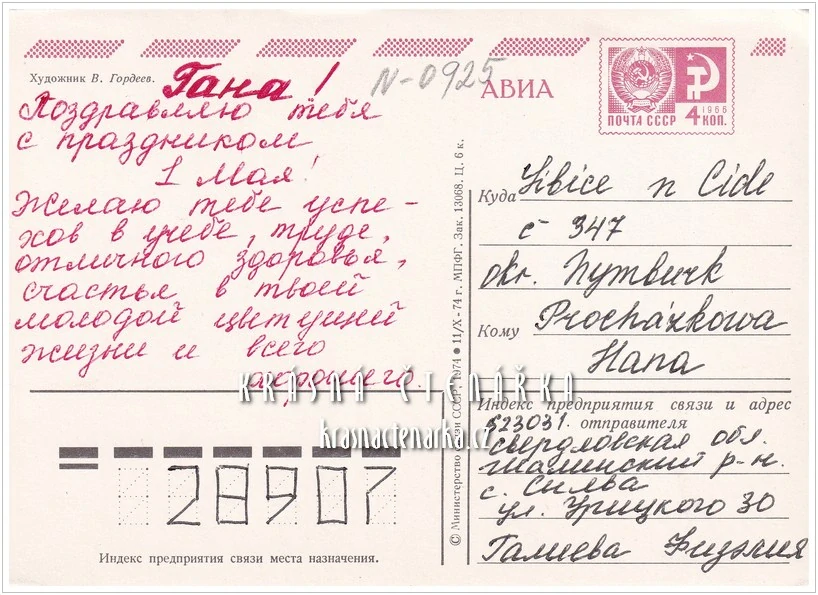 Художник В. Гордеев.
Гана!
N-0925
АВИА
1966
ПОЧТА СССР
4 КОП.
Поздравляю тебя
с праздником
1 Мая!
Желаю тебе успе-
хов в учебе, труде,
отличного здоровья,
счастья в твоей
молодой цветущей
жизни и всего
хорошего.
© Министерство связи СССР, 1974 • 11/X-74 г. МПФГ. Зак. 13068. Ц. 6 к.
Куда Libice n Cidl
č 347
okr. Nymburk
Кому Procházkowa
Hana
Индекс предприятия связи и адрес
отправителя
623031.
Свердловская обл.
Шалинский р-н.
с. Сылва
ул. Урицкого 30
Галиева
28907
Индекс предприятия связи места назначения.
KRÁSNÁ ČTENÁŘKA
krasnactenarka.cz